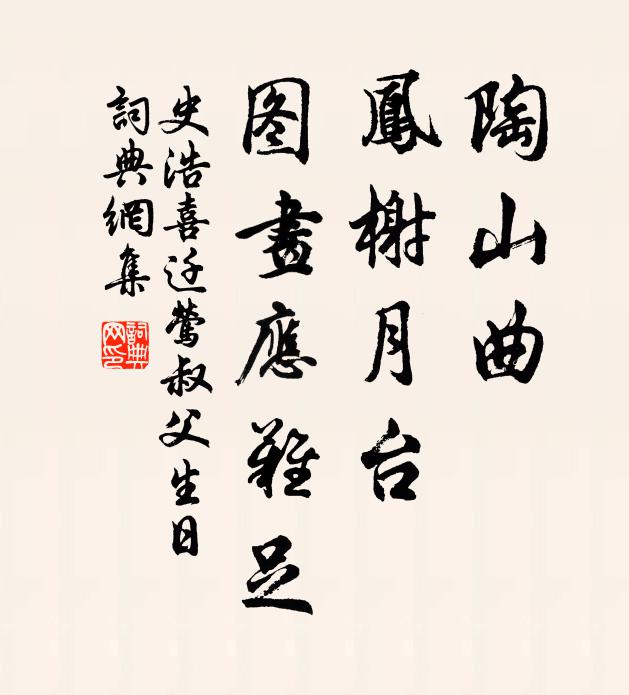 陶山曲
鳳榭月台
图畫應難足
史浩喜迁鶯叔父生日
詞典網集
詞典網印